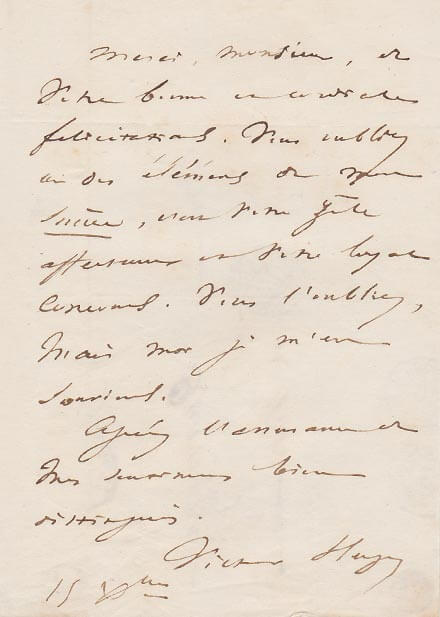 Merci, monsieur, de
votre bonne et cordiale
félicitation. Vous oubliez
un des éléments de mon
succès, c'est votre zèle
affectueux et votre loyal
concours. Vous l'oubliez,
mais moi je m'en
souviens.
Agréez l'assurance de
mes sentiments bien
distingués.
Victor Hugo
15 Xbre